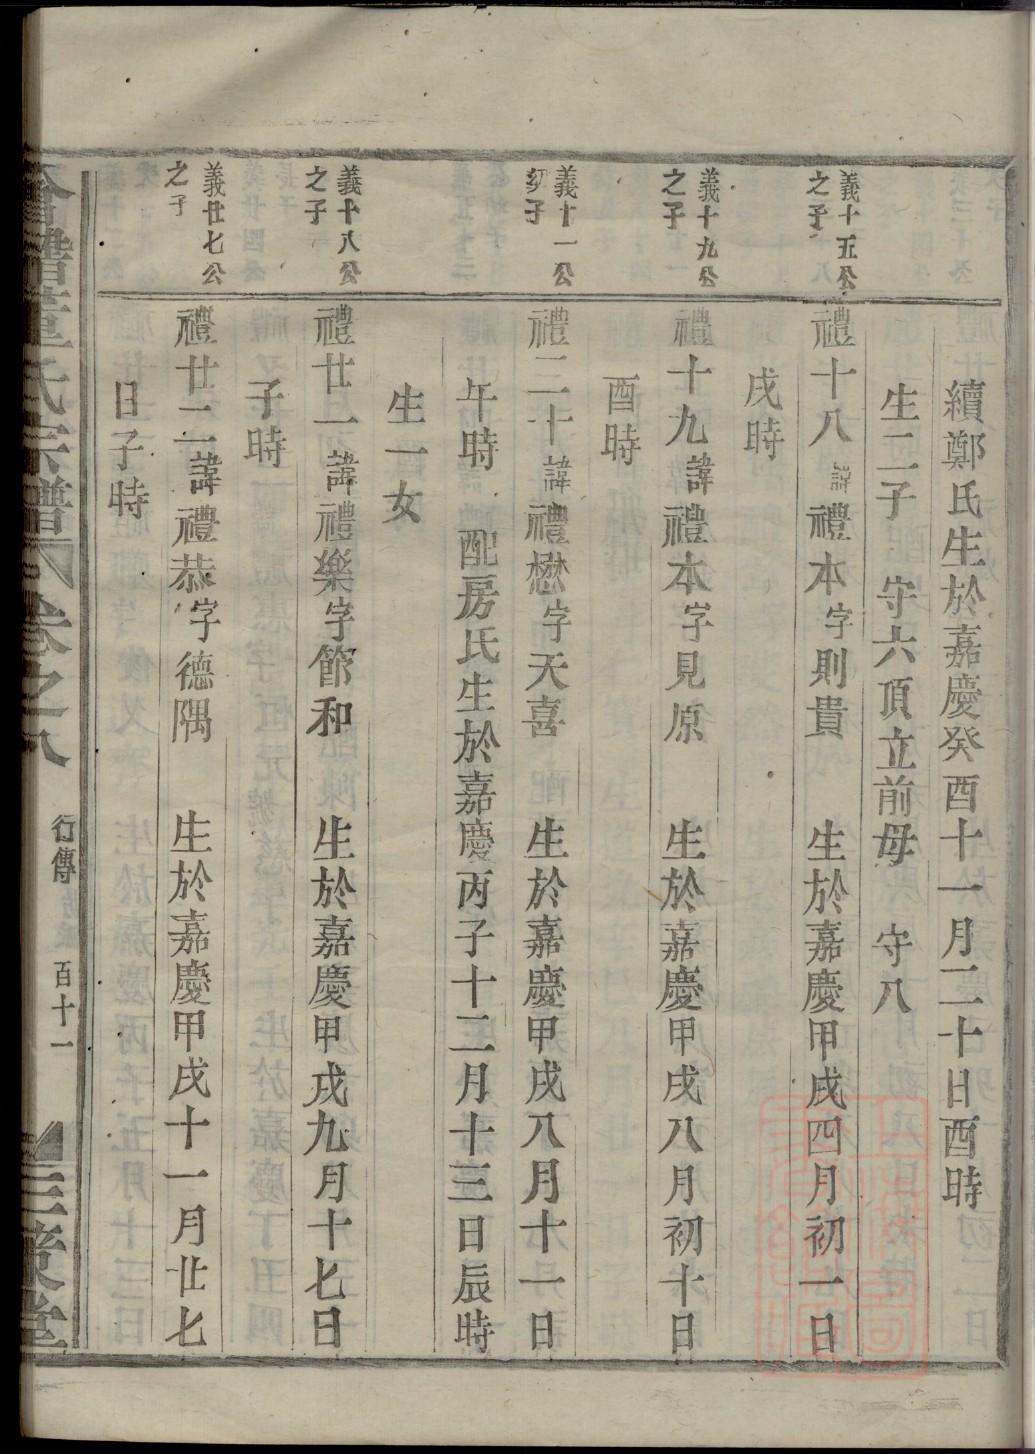 續鄭氏生於嘉慶癸酉十一月二十日酉時
生二子 守六頂立前母 守八
義十五公之子
禮十八諱禮本字則貴 生於嘉慶甲戌四月初一日
戌時
義十九公之子
禮十九諱禮本字見原 生於嘉慶甲戌八月初十日
酉時
義十一公
子
禮二十諱禮懋字天喜 生於嘉慶甲戌八月十一日
午時 配房氏生於嘉慶丙子十二月十三日辰時
生一女
義十八公之子
禮廿一諱禮樂字節和 生於嘉慶甲戌九月十七日
子時
義廿七公之子
禮廿二諱禮恭字德隅 生於嘉慶甲戌十一月廿七
日子時
氏宗譜 卷之八 行傳 百十一 堂